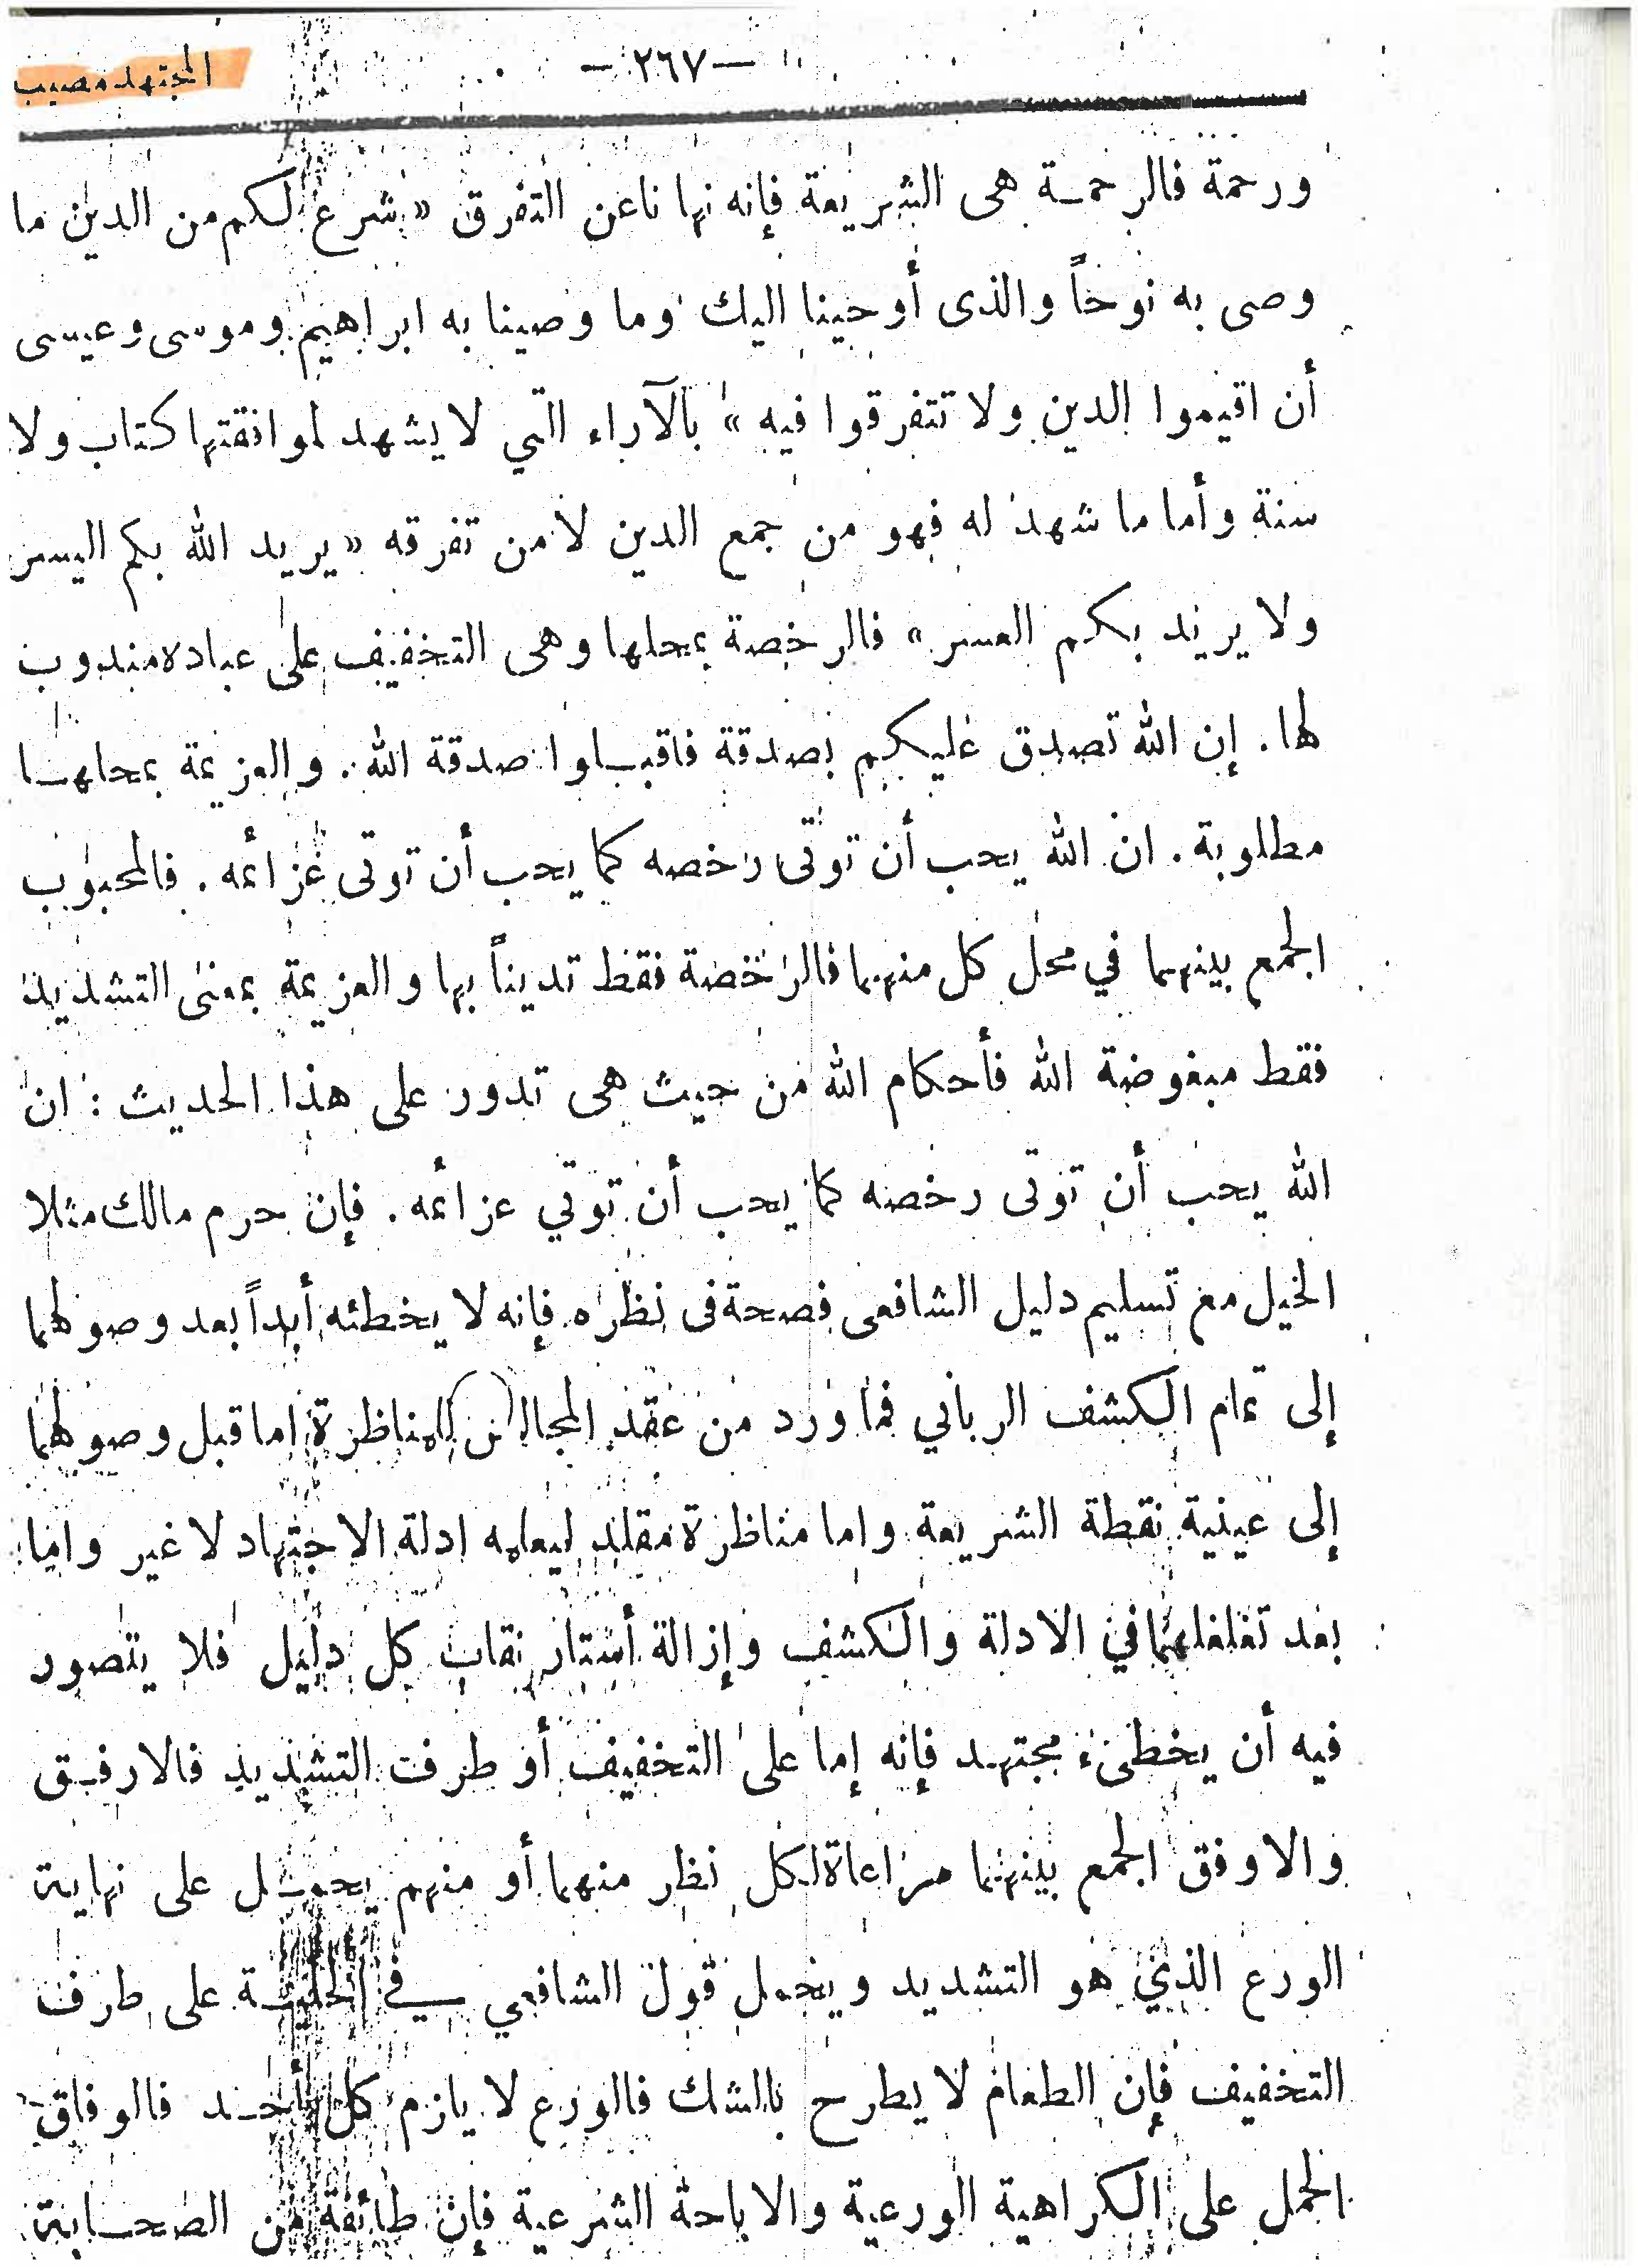 —٢٦٧—
المجتهد مصيب
ورحمة فالرحمة هى الشريعة فإنه نهانا عن التفرق «شرع لكم من الدين ما
وصى به نوحاً والذى أوحينا اليك وما وصينا به ابراهيم وموسى وعيسى
أن اقيموا الدين ولا تتفرقوا فيه» بالآراء التي لا يشهد لموافقتها كتاب ولا
سنة وأما ما شهد له فهو من جمع الدين لا من تفرقه «يريد الله بكم اليسر
ولا يريد بكم العسر» فالرخصة بمحلها وهى التخفيف على عباده مندوب
لها. إن الله تصدق عليكم بصدقة فاقبلوا صدقة الله. والعزيمة بمحلها
مطلوبة. ان الله يحب أن توتى رخصه كما يحب أن توتى عزائمه. فالمحبوب
الجمع بينهما في محل كل منهما فالرخصة فقط تديناً بها والعزيمة بمعنى التشديد
فقط مبغوضة الله فأحكام الله من حيث هى تدور على هذا الحديث: ان
الله يحب أن توتى رخصه كما يحب أن توتي عزائمه. فإن حرم مالك مثلا
الخيل مع تسليم دليل الشافعى فصحة فى نظره فإنه لا يخطئه أبداً بعد وصولهما
إلى تمام الكشف الرباني فما ورد من عقد المجالس للمناظرة اما قبل وصولهما
إلى عينية نقطة الشريعة واما مناظرة مقلد ليعلمه ادلة الاجتهاد لا غير واما
بعد تغلغلهما في الادلة والكشف وإزالة أستار نقاب كل دليل فلا يتصور
فيه أن يخطىء مجتهد فإنه إما على التخفيف أو طرف التشديد فالارفق
والاوفق الجمع بينهما مراعاة لكل نظر منهما أو منهم يحمل على نهاية
الورع الذي هو التشديد ويحمل قول الشافعي في الحلية على طرف
التخفيف فإن الطعام لا يطرح بالشك فالورع لا يلزم كل أحد فالوفاق
الحمل على الكراهية الورعية والاباحة الشرعية فإن طائفة من الصحابة